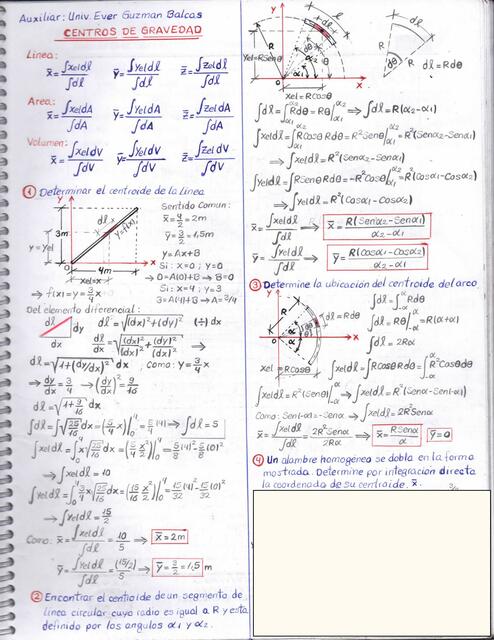 Auxiliar: Univ. Ever Guzman Balcas
CENTROS DE GRAVEDAD
Línea:
x̄ = ∫xel dl / ∫dl   ȳ = ∫Yel dl / ∫dl   z̄ = ∫Zel dl / ∫dl
Area:
x̄ = ∫xel dA / ∫dA   ȳ = ∫Yel dA / ∫dA   z̄ = ∫Zel dA / ∫dA
Volumen:
x̄ = ∫xel dV / ∫dV   ȳ = ∫Yel dV / ∫dV   z̄ = ∫Zel dV / ∫dV
① Determinar el centroide de la línea
Y
dl
y=f(x)
3m
y=Yel
0
x
xel=x
4m
Sentido Comun:
x̄ = 4/2 = 2m
ȳ = 3/2 = 1,5m
y = Ax+B
Si: x=0; y=0
0=A(0)+B → B=0
Si: x=4; y=3
3=A(4)+B → A=3/4
⇒ f(x)=y=3/4 x
Del elemento diferencial:
dl dy
dx
dl = √(dx)²+(dy)² (÷) dx
dl/dx = √(dx)²/(dx)² + (dy)²/(dx)² ⇒
dl = √1+(dy/dx)² dx, como: y=3/4 x
⇒ dy/dx = 3/4 → (dy/dx)² = 9/16
dl = √1+9/16 dx
∫dl = ∫₀⁴ √25/16 dx = (5/4 x)|₀⁴ = 5/4 (4) ⇒ ∫dl = 5
∫xel dl = ∫₀⁴ x √25/16 dx = (5/4 x²/2)|₀⁴ = 5/8 (4)² - 5/8 (0)²
⇒ ∫xel dl = 10
∫Yel dl = ∫₀⁴ 3/4 x √25/16 dx = (15/16 x²/2)|₀⁴ = 15/32 (4)² - 15/32 (0)²
⇒ ∫Yel dl = 15/2
Como: x̄ = ∫xel dl / ∫dl = 10/5 ⇒ x̄ = 2m
ȳ = ∫Yel dl / ∫dl = (15/2)/5 ⇒ ȳ = 3/2 = 1,5 m
② Encontrar el centroide de un segmento de
línea circular cuyo radio es igual a R y esta
definido por los angulos α1 y α2.
dl
R
Yel=RSenθ
dθ
θ
α1
α2
0
x
xel=RCosθ
dl
R
dθ
dl = Rdθ
∫dl = ∫α1^α2 Rdθ = Rθ|α1^α2 ⇒ ∫dl = R(α2-α1)
∫xel dl = ∫RCosθ Rdθ = R²Senθ|α1^α2 = R²(Senα2-Senα1)
⇒ ∫xel dl = R²(Senα2-Senα1)
∫Yel dl = ∫RSenθ Rdθ = -R²Cosθ|α1^α2 = R²(Cosα1-Cosα2)
⇒ ∫Yel dl = R²(Cosα1-Cosα2)
x̄ = ∫xel dl / ∫dl ⇒ x̄ = R(Senα2-Senα1) / α2-α1
ȳ = ∫Yel dl / ∫dl ⇒ ȳ = R(Cosα1-Cosα2) / α2-α1
③ Determine la ubicación del centroide del arco
Y
dl=Rdθ
R
dθ
α
α
0
x
xel=RCosθ
∫dl = ∫-α^α Rdθ
∫dl = Rθ|-α^α = R(α+α)
∫dl = 2Rα
∫xel dl = ∫RCosθ Rdθ = ∫-α^α R²Cosθdθ
∫xel dl = R²(Senθ)|-α^α ⇒ ∫xel dl = R²(Senα-Sen(-α))
Como: Sen(-α) = -Senα ⇒ ∫xel dl = 2R²Senα
x̄ = ∫xel dl / ∫dl = 2R²Senα / 2Rα ⇒ x̄ = RSenα / α   ȳ=0
④ Un alambre homogéneo se dobla en la forma
mostrada. Determine por integración directa
la coordenada de su centroide. x̄.